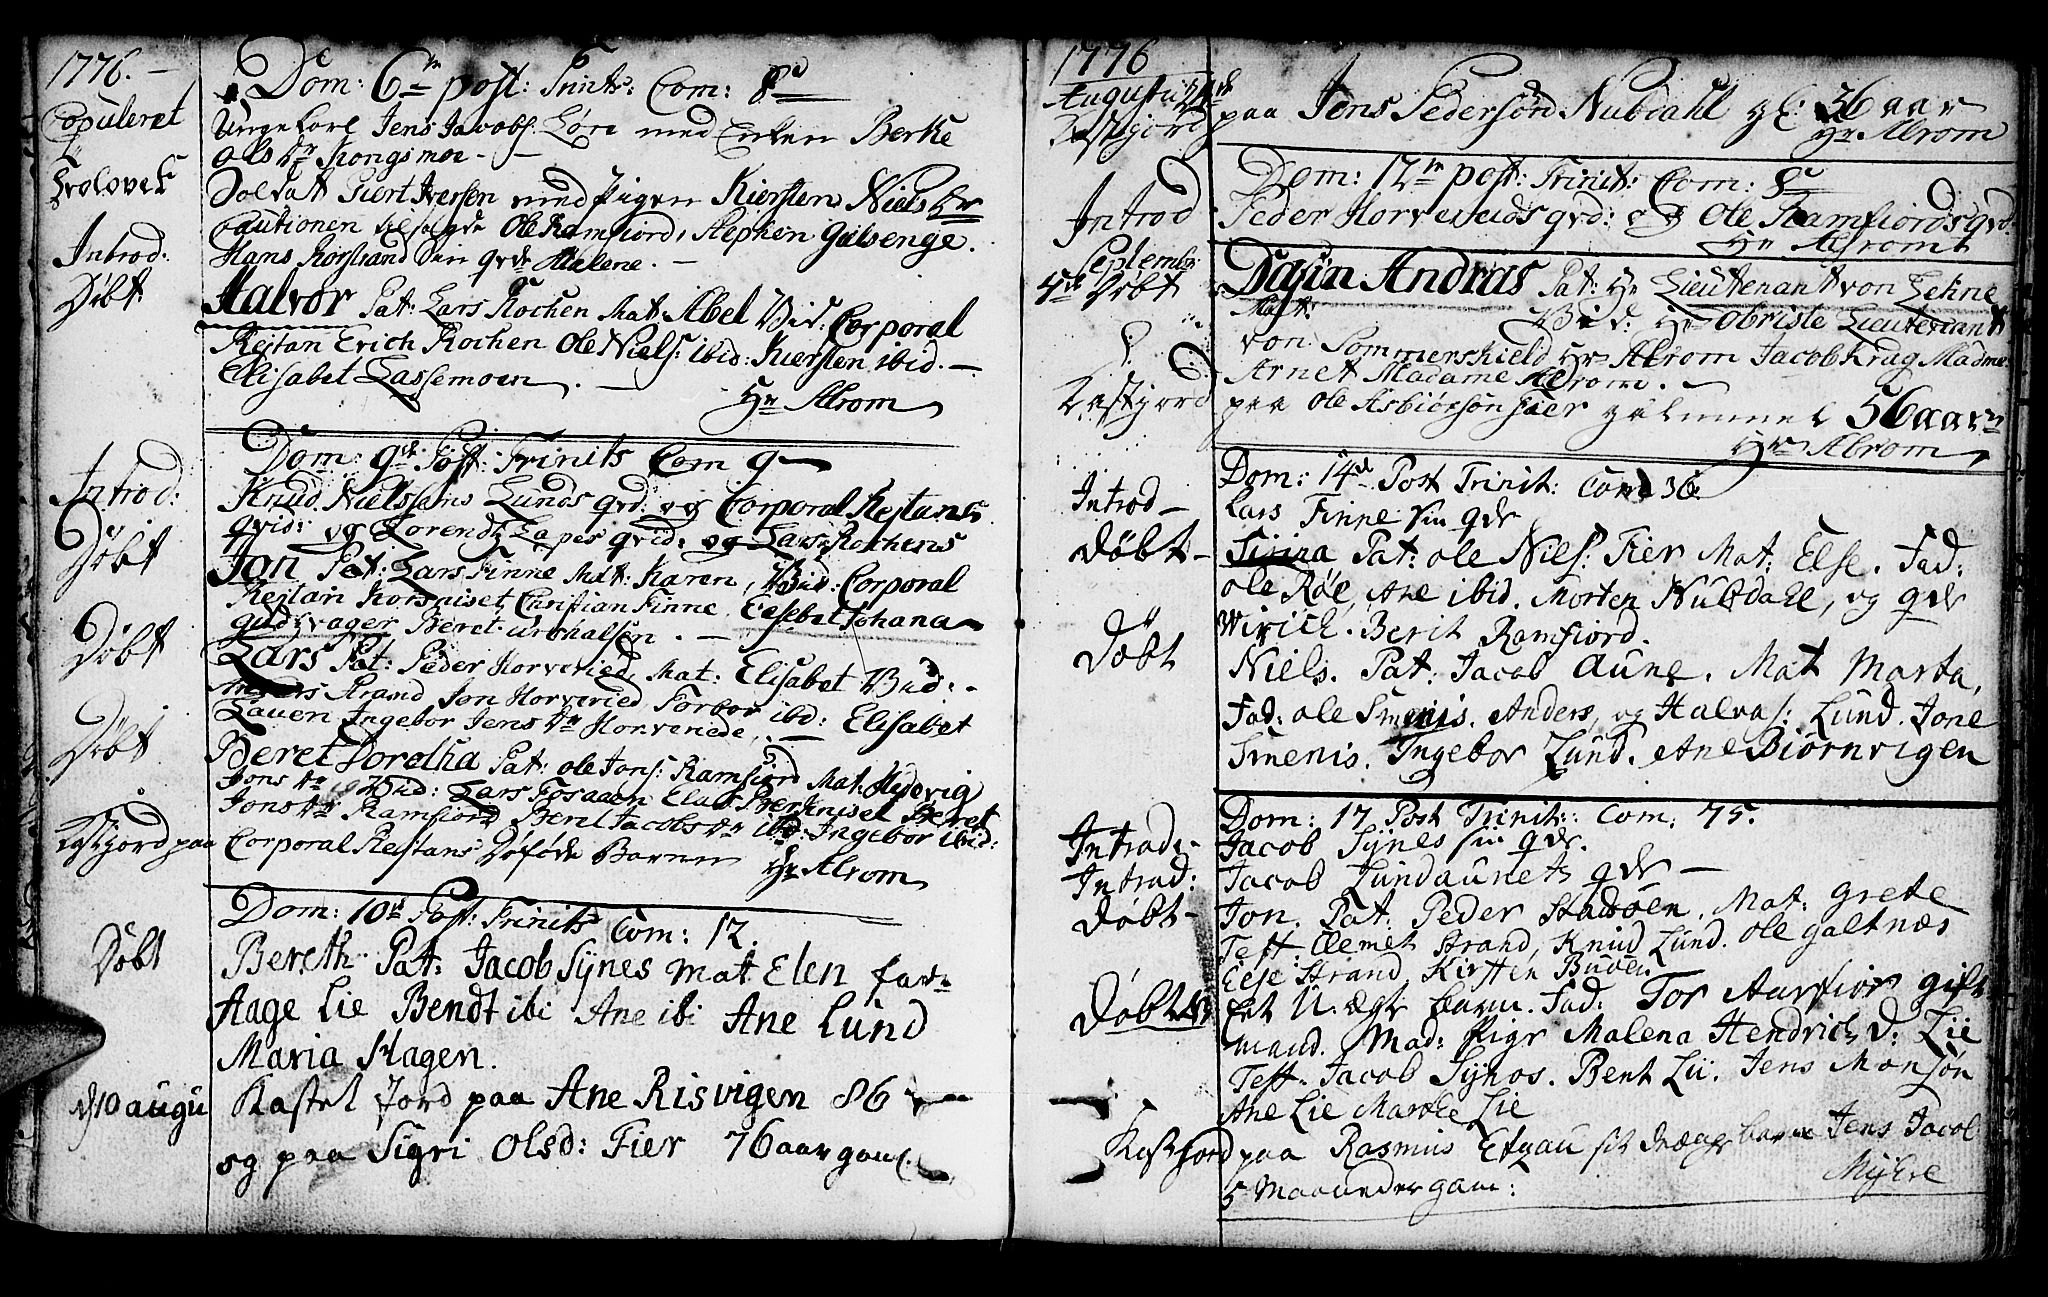 1776.
Copuleret
Trolovet
Introd:
Döbt
Introd:
Döbt
Döbt
Döbt
Kastjord paa
Döbt
d 10 augu
Dom: 6te post: Trinits: Com: 8
Ungekarl Jens Jacobs: med Enken Berte
Ols dr Kongsmoe.
Soldat Siert Iversen med Pigen Kiersten Niels dr
Cautionen Ole Ramfiord, Stephen Galsenge.
Hans Korstrand Sin qvde Malene.
Halvor Pat: Lars Kochen Mat: Abel Vid: Corporal
Restan Erich Kochen Ole Niels: ibid: Kiersten ibid.
Elisabet Lassemoen.
Hr Alrom
Dom: 9de Post: Trinits Com 9
Knud Nielssens Lunds qvd: og Corporal Restans
qvid: og Lorendtz Lapes qvid: og Lars Kochens
Jon Pat: Lars Finne Mat: Karen, Vid: Corporal
Restan Christian Finne, Elsebet Johana
Beret
Lars Pat: Peder Horveried, Mat: Elisabet Vid:
Anders Strand Jon Horveried, Torber ibid: Elisabet
Lauen Ingebor Jens dr Horveriede,
Beret Dorotha Pat: ole Jons: Ramfiord Mat: Hedevig
Jons dr Vid: Lars Fosaaen Beret
Jons dr Ramfiord Beret Jacobs dr ibd: Ingebor ibid:
Corporal Restans Döföde Barn
Hr Alrom
Dom: 10de Post: Trinits Com: 12
Bereth Pat: Jacob Synes mat Elen
Aage Lie Bendt ibi Ane ibi Ane Lund
Maria Hagen.
Kastet Jord paa Ane Risvigen 86
og paa Sigri Olsd: Fier 76 aar gaml.
1776
Augusti
Kastjord
Introd
Septemb:
Döbt
Kastjord
Introd
Döbt
Döbt
Introd:
Introd:
Döbt
Döbt
Kastjord
paa Jens Pedersön Nubdahl gl: 56 aar
Hr Alrom
Dom: 12te post: Trinit: Com: 8
Peder Horverieds qvd: og Ole Ramfiords qvd:
Hr Alrom
Dagün Andras Pat: Hr Lieutenant von Lehne
Mat: Vid: Hr Obriste Lieutenant
von Sommerskield Hr Alrom Jacob Krag Madme
Arnet Madame Alrom.
paa Ole Asbiörsön Fier gammel 56 aar
Hr Alrom
Dom: 14de Post Trinit: Com 36
Lars Finne Sin qde
Sirina Pat: ole Niels: Fier Mat: Else. Fad:
ole Röe, Ane ibid. Morten Nubdahl, og qde
Wirich. Berit Ramfiord.
Niels. Pat: Jacob Aune. Mat Marta,
Fad: ole Smenis. Anders og Halvas: Lund. Jone
Smenis. Ingebor Lund. Ane Biörnvigen
Dom: 17 Post Trinit: Com: 75.
Jacob Synes sin qde.
Jacob Lundaunets qde
Jon. Pat: Peder Stadsöen. Mat: grete
Test: Clemet Strand, Knud Lund. ole galtnæs
Else Strand. Kirsten Buöen
Et U: ægte barn. Fad: Tor Aarfior gift
mand. Mad: Pige Malena Hendrich d: Lie
Test: Jacob Synos. Bent Lii. Jens Monsön
Ane Lie Marthe Lie
paa Rasmus drænge barn Jens Jacob
5 Maaneder gam: